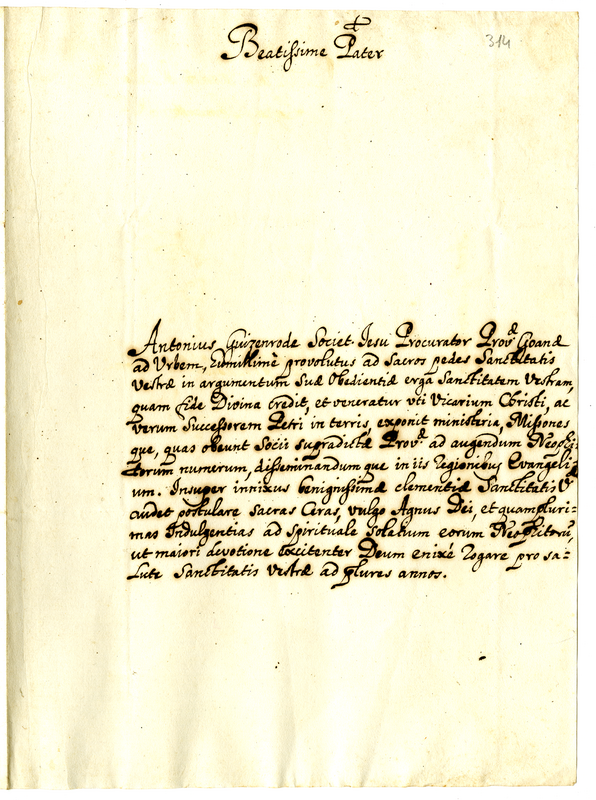 ✝
Beatissime Pater
314
Antonius Güzenrode Societ. Iesu Procurator Provæ. Goanæ
ad Urbem, humillimè provolutus ad sacros pedes Sanctitatis
Vestræ in argumentum suæ obedientiæ erga Sanctitatem Vestram,
quam fide Divina credit, et veneratur uti Vicarium Christi, ac
verum Successorem Petri in terris, exponit ministeria, Missiones
que, quas obeunt Socii supradictæ Provæ. ad augendum Neophi-
torum numerum, disseminandumque in iis regionibus Evangeli
um. Insuper innixus benignissimæ clementiæ Sanctitatis V
audet postulare sacras Ceras, vulgo Agnus Dei, et quampluri=
mas Indulgentias ad spirituale solatium eorum Neophitorũ,
ut maiori devotione excitentur Deum enixè rogare pro sa=
lute Sanctitatis Vestræ ad plures annos.